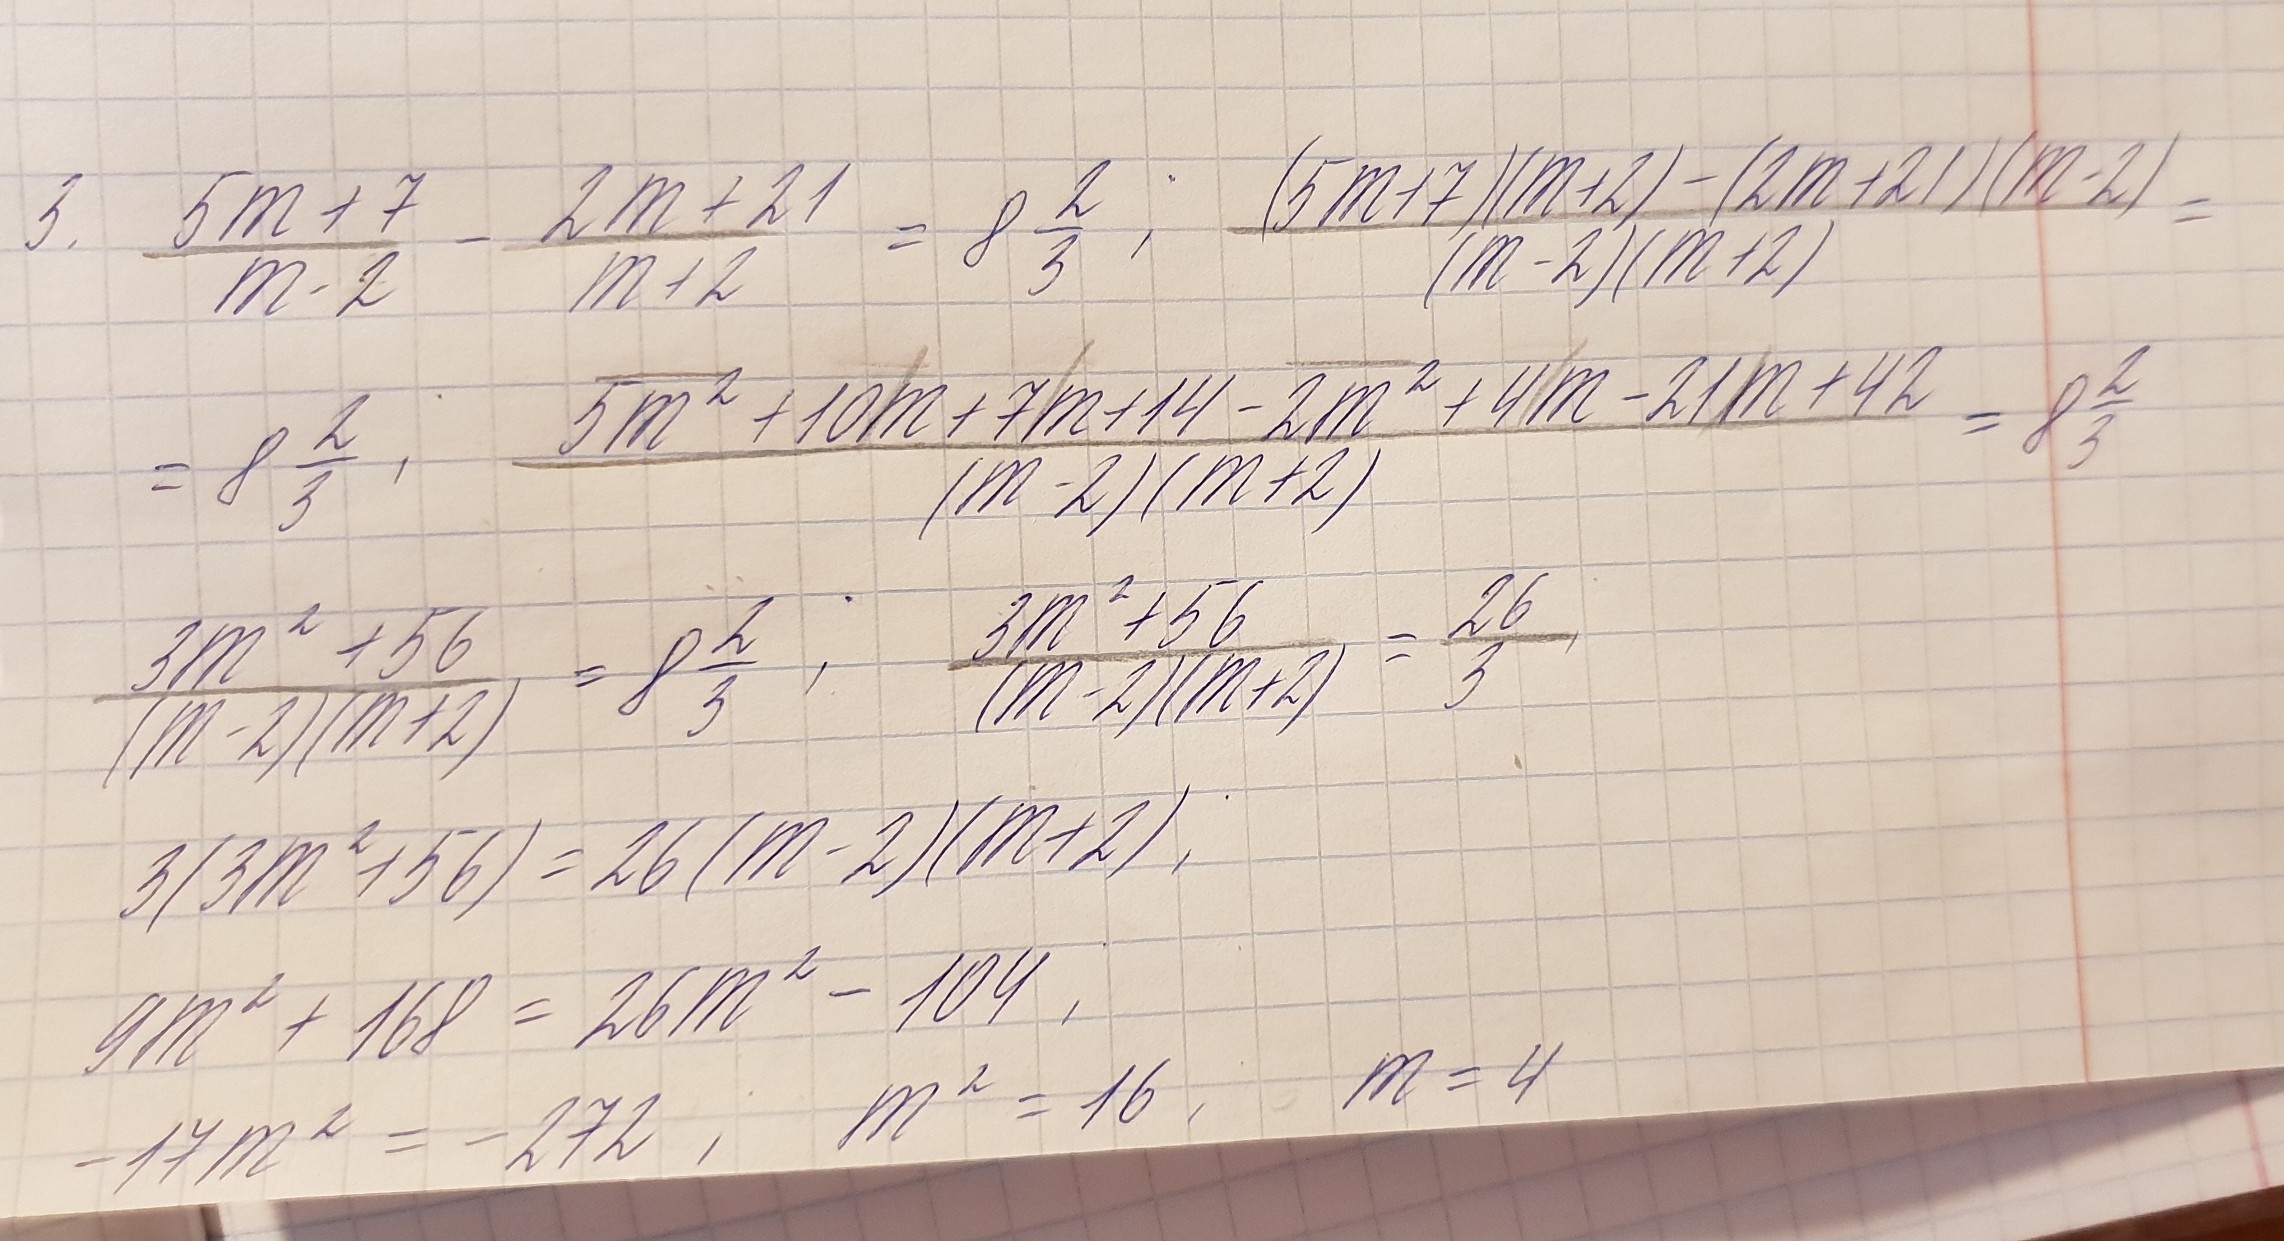 3. (5m+7)/(m-2) - (2m+21)/(m+2) = 8 2/3; ((5m+7)(m+2)-(2m+21)(m-2))/((m-2)(m+2)) =
= 8 2/3; (5m²+10m+7m+14-2m²+4m-21m+42)/((m-2)(m+2)) = 8 2/3
(3m²+56)/((m-2)(m+2)) = 8 2/3; (3m²+56)/((m-2)(m+2)) = 26/3;
3(3m²+56)=26(m-2)(m+2);
9m²+168=26m²-104;
-17m²=-272; m²=16; m=4